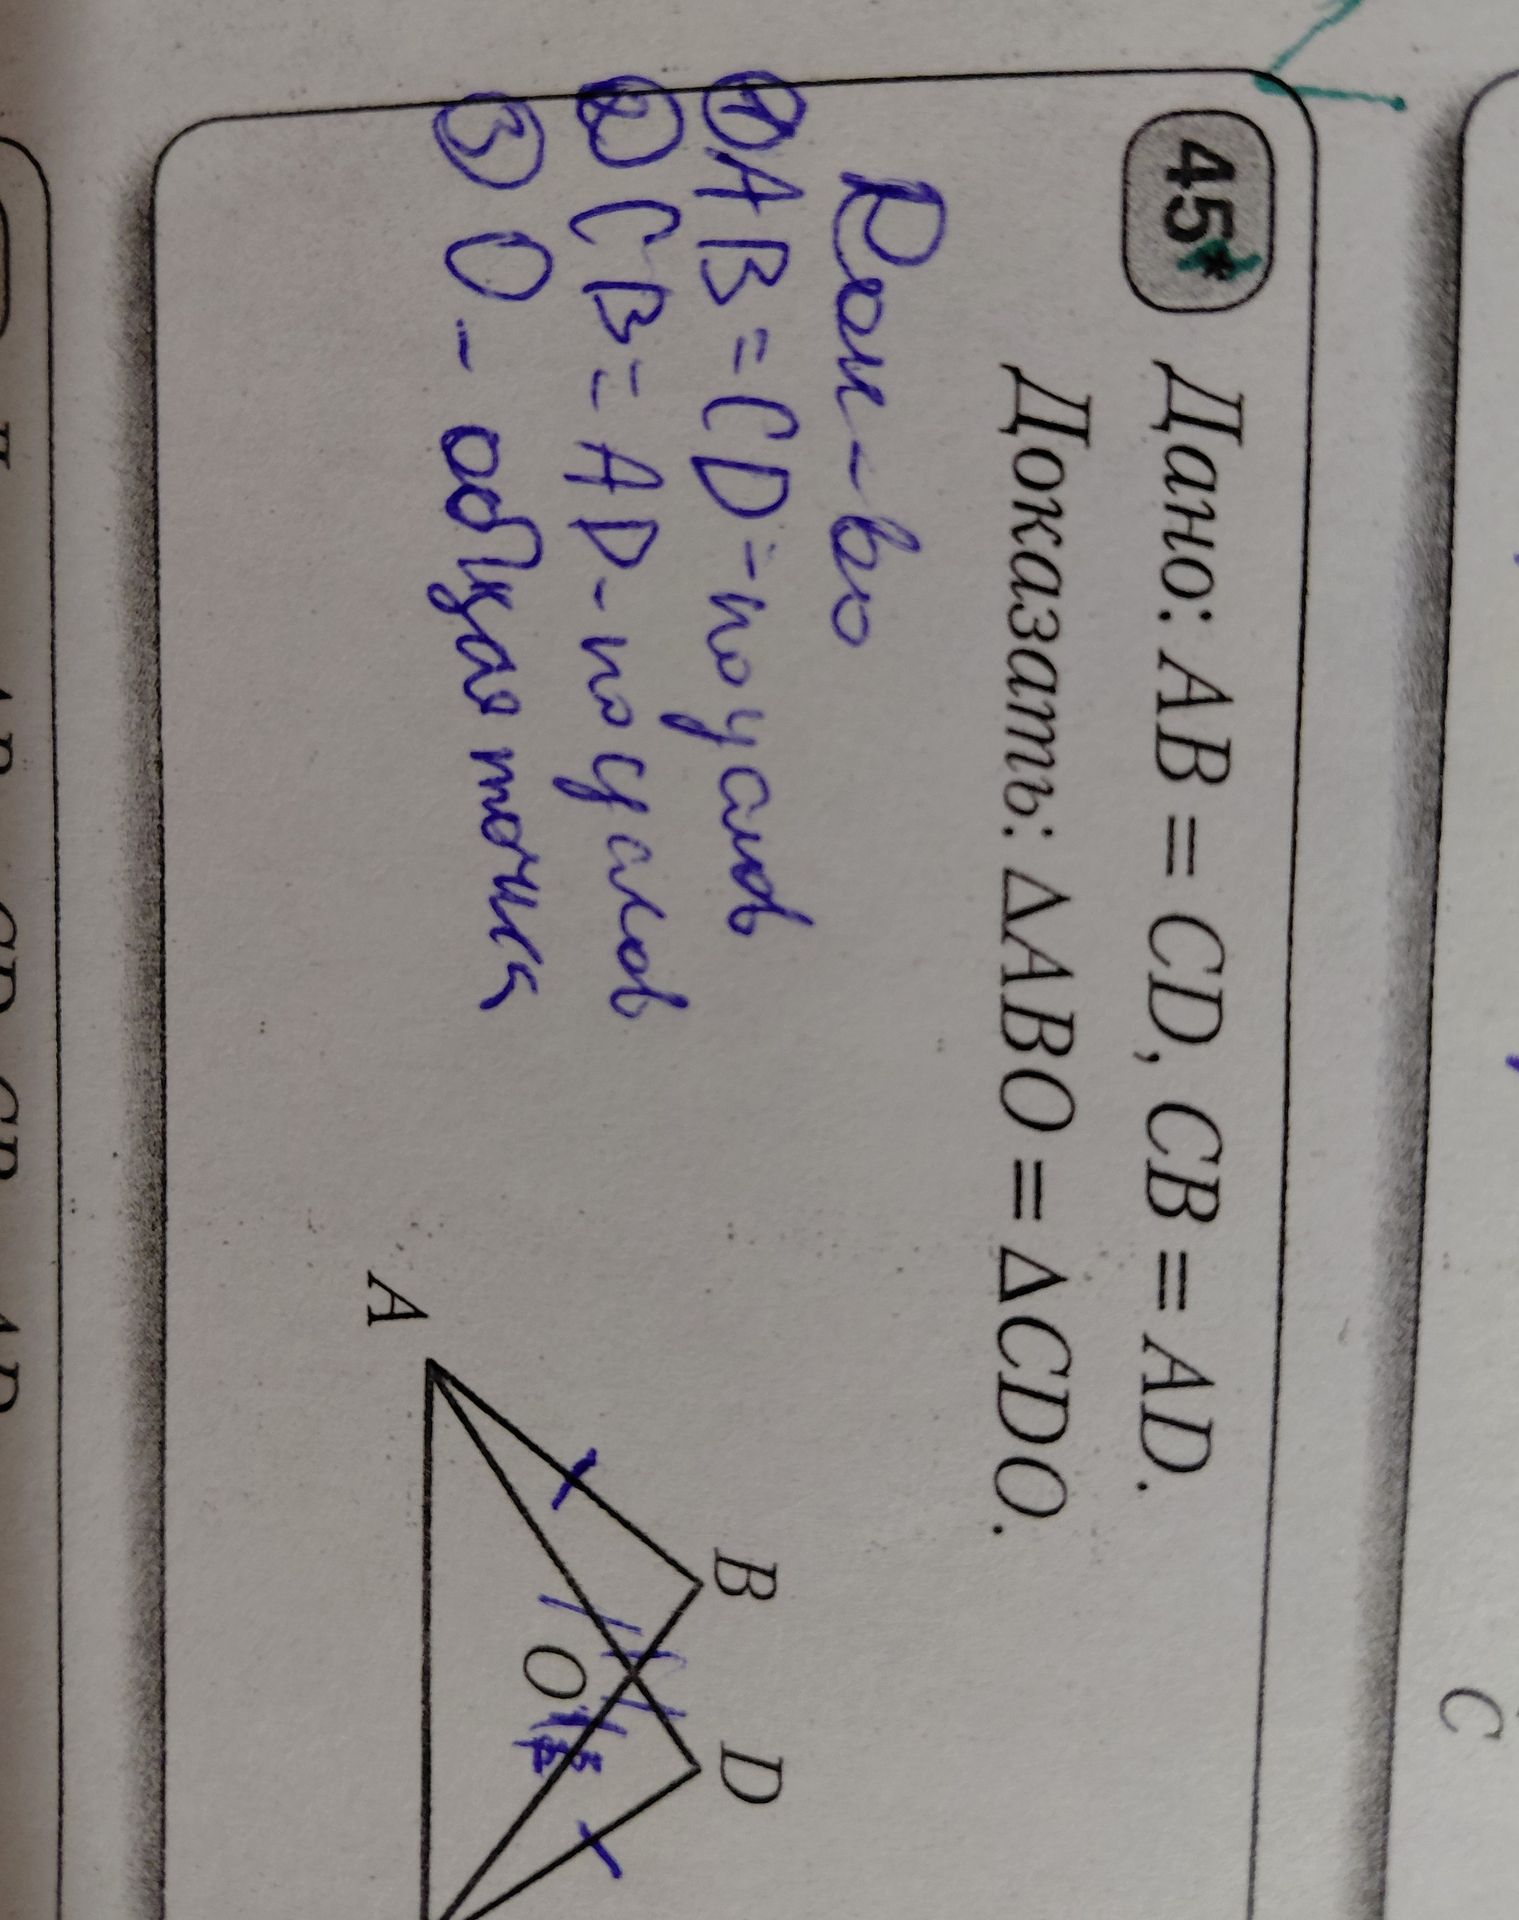 45* Дано: AB = CD, CB = AD.
Доказать: ΔABO = ΔCDO.
Док-во
① AB = CD - по услов
② CB = AD - по услов
③ O - общая точка
A
B
O
D
C